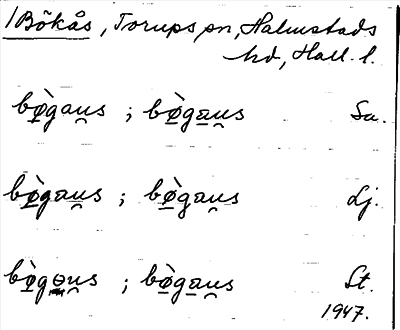 1 Bökås, Torups sn, Halmstads
hd, Hall. l.
bø̀gau̯s ; bø̀gau̯s Su.
bø̀gau̯s ; bø̀gau̯s Lj.
bø̀gɵu̯s ; bø̀gau̯s St.
1947.